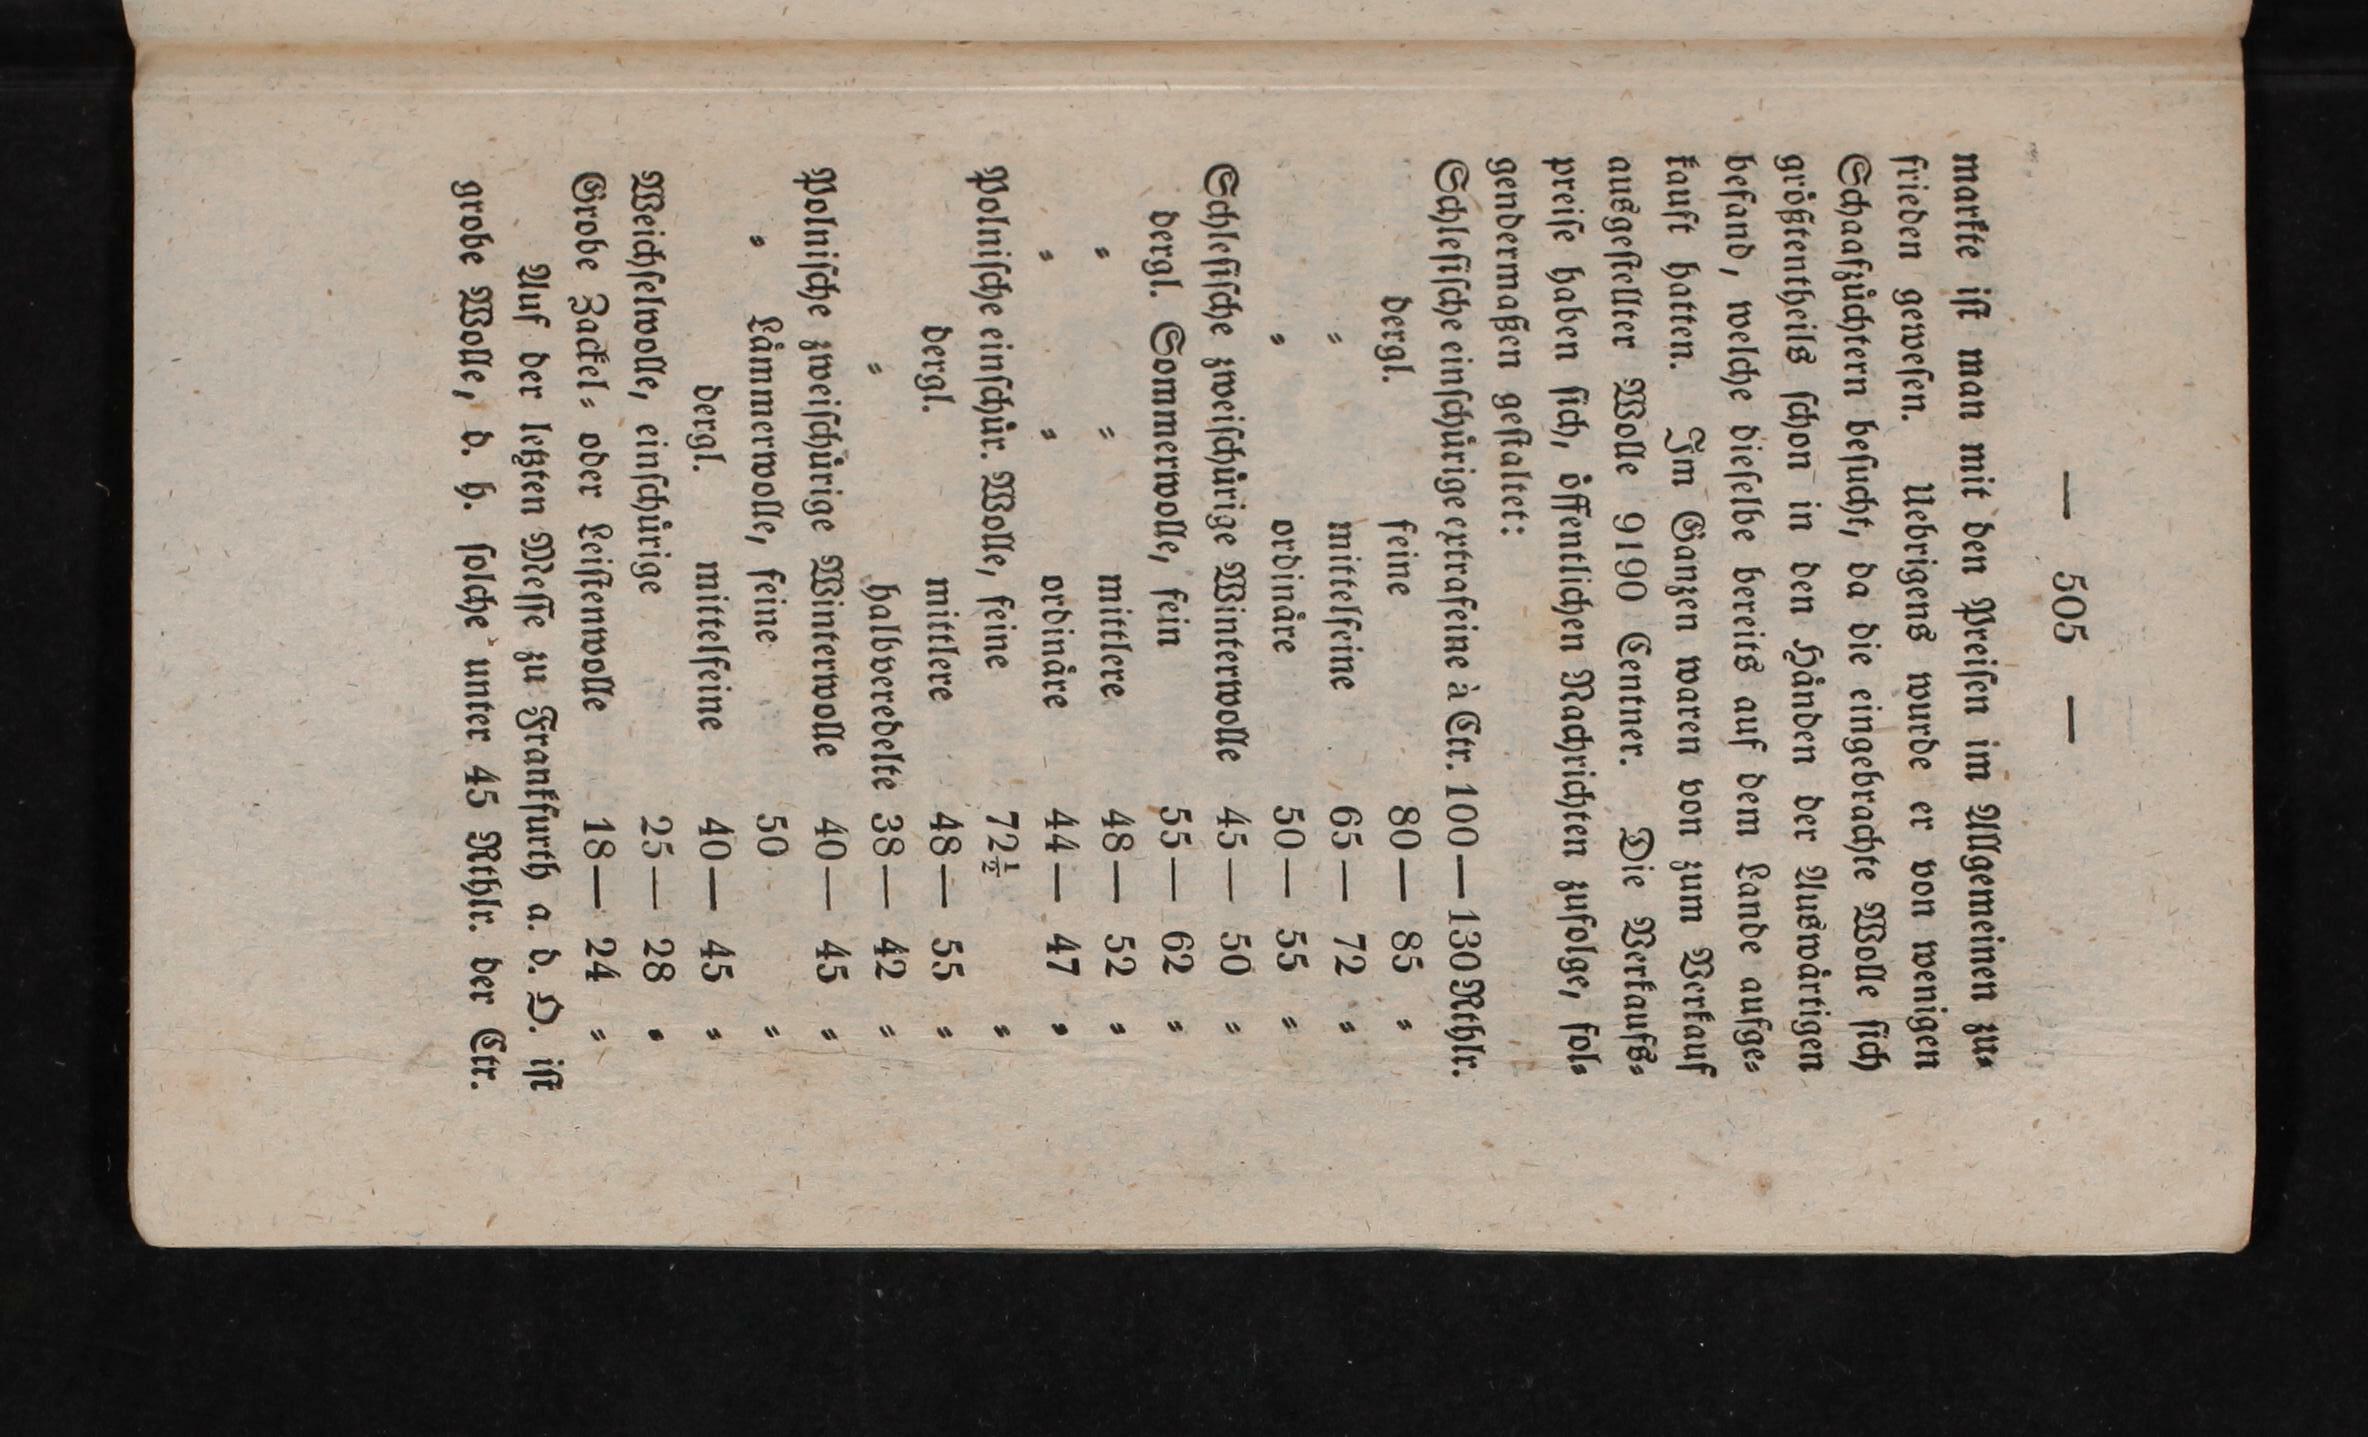 — 505 —
markte ist man mit den Preisen im Allgemeinen zu-
frieden gewesen. Uebrigens wurde er von wenigen
Schaafzüchtern besucht, da die eingebrachte Wolle sich
größtentheils schon in den Händen der Auswärtigen
befand, welche dieselbe bereits auf dem Lande aufge-
kauft hatten. Im Ganzen waren von zum Verkauf
ausgestellter Wolle 9190 Centner. Die Verkaufs-
preise haben sich, öffentlichen Nachrichten zufolge, fol-
gendermaßen gestaltet:
Schlesische einschürige extrafeine à Ctr. 100 — 130 Rthlr.
dergl. feine 80 — 85 "
" mittelfeine 65 — 72 "
" ordinäre 50 — 55 "
Schlesische zweischürige Winterwolle 45 — 50 "
dergl. Sommerwolle, fein 55 — 62 "
" " mittlere 48 — 52 "
" " ordinäre 44 — 47 "
Polnische einschür. Wolle, feine 72½ "
dergl. mittlere 48 — 55 "
" halbveredelte 38 — 42 "
Polnische zweischürige Winterwolle 40 — 45 "
" Lämmerwolle, feine 50 "
dergl. mittelfeine 40 — 45 "
Weichselwolle, einschürige 25 — 28 "
Grobe Zackel- oder Leistenwolle 18 — 24 "
Auf der letzten Messe zu Frankfurth a. d. O. ist
grobe Wolle, d. h. solche unter 45 Rthlr. der Ctr.